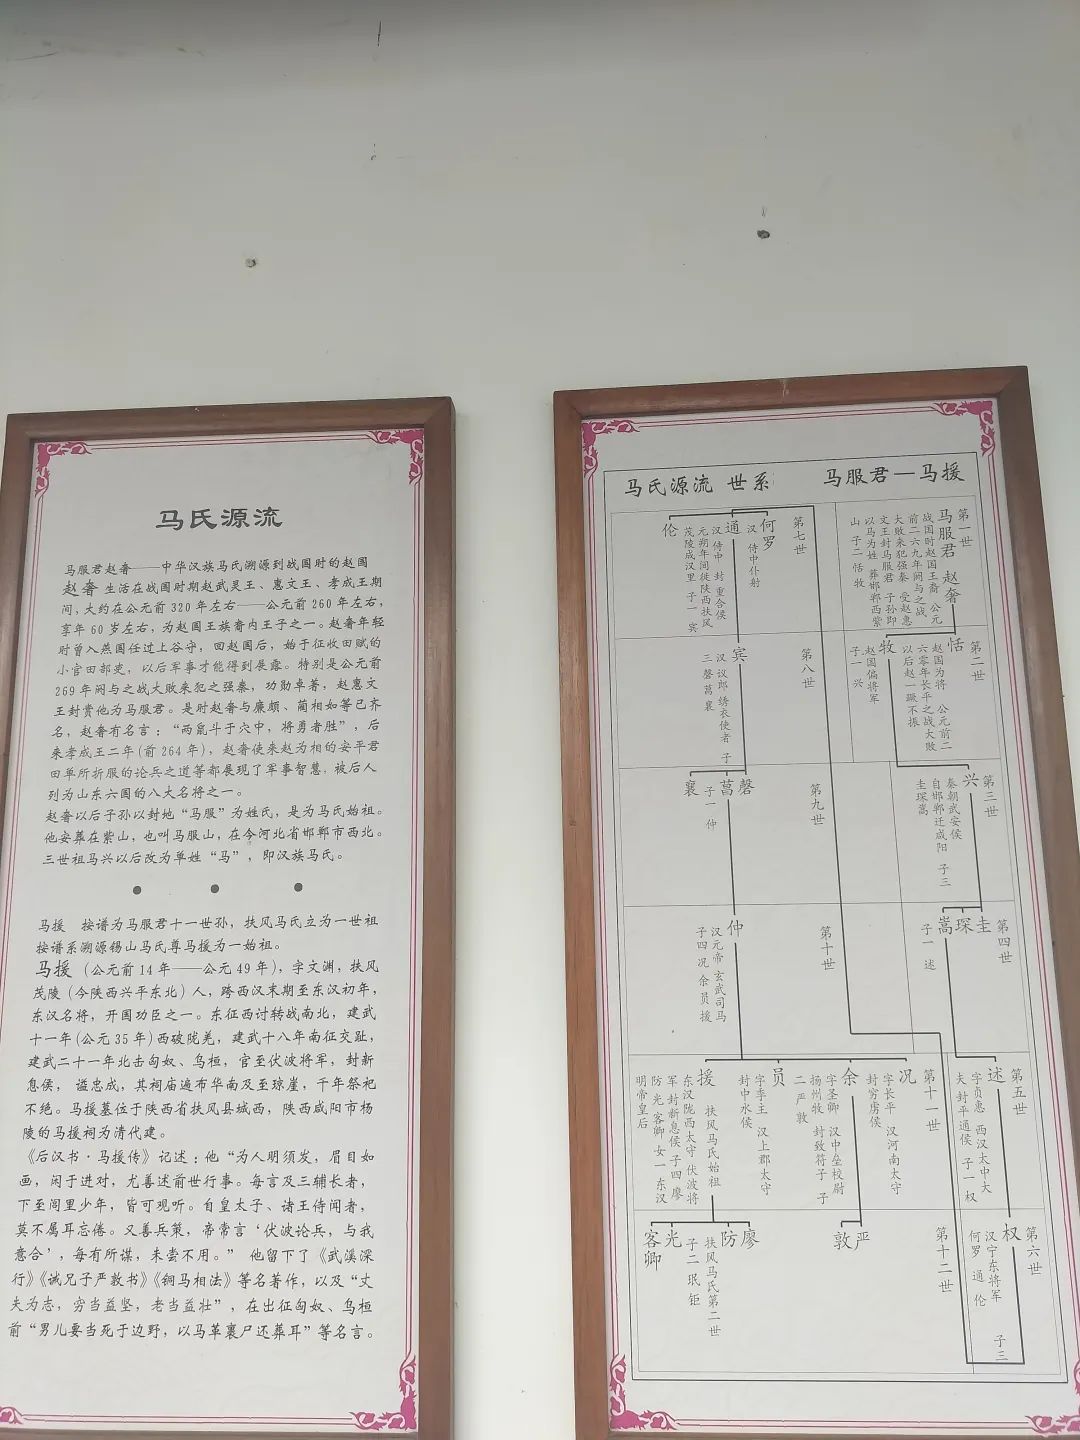 马氏源流
马服君赵奢——中华汉族马氏溯源到战国时的赵国
赵奢 生活在战国时期赵武灵王、惠文王、孝成王期
间，大约在公元前320年左右——公元前260年左右，
享年60岁左右，为赵国王族裔内王子之一。赵奢年轻
时曾入燕国任过上谷守，回赵国后，始于征收田赋的
小官田部吏，以后军事才能得到展露。特别是公元前
269年阏与之战大败来犯之强秦，功勋卓著，赵惠文
王封赏他为马服君。是时赵奢与廉颇、蔺相如等已齐
名，赵奢有名言：“两鼠斗于穴中，将勇者胜”，后
来孝成王二年(前264年)，赵奢使来赵为相的安平君
田单所折服的论兵之道等都展现了军事智慧，被后人
列为山东六国的八大名将之一。
赵奢以后子孙以封地“马服”为姓氏，是为马氏始祖。
他安葬在紫山，也叫马服山，在今河北省邯郸市西北。
三世祖马兴以后改为单姓“马”，即汉族马氏。
马援 按谱为马服君十一世孙，扶风马氏立为一世祖
按谱系溯源锡山马氏尊马援为一始祖。
马援（公元前14年——公元49年），字文渊，扶风
茂陵（今陕西兴平东北）人，跨西汉末期至东汉初年，
东汉名将，开国功臣之一。东征西讨转战南北，建武
十一年(公元35年)西破陇羌，建武十八年南征交趾，
建武二十一年北击匈奴、乌桓，官至伏波将军，封新
息侯，谥忠成，其祠庙遍布华南及至琼崖，千年祭祀
不绝。马援墓位于陕西省扶风县城西，陕西咸阳市杨
陵的马援祠为清代建。
《后汉书·马援传》记述：他“为人明须发，眉目如
画，闲于进对，尤善述前世行事。每言及三辅长者，
下至闾里少年，皆可观听。自皇太子、诸王侍闻者，
莫不属耳忘倦。又善兵策，帝常言‘伏波论兵，与我
意合’，每有所谋，未尝不用。” 他留下了《武溪深
行》《诫兄子严敦书》《铜马相法》等名著作，以及“丈
夫为志，穷当益坚，老当益壮”，在出征匈奴、乌桓
前“男儿要当死于边野，以马革裹尸还葬耳”等名言。
马氏源流 世系 马服君—马援
第一世
马服君 赵奢
战国时赵国王裔 公元
前二六九年阏与之战
大败来犯强秦 受赵惠
文王封马服君 子孙即
以马为姓 葬邯郸西紫
山 子二 恬 牧
第二世
恬
赵国为将 公元前二
六零年长平之战大败
以后赵一蹶不振
牧
赵国偏将军
子一 兴
第三世
兴
秦朝武安侯
自邯郸迁咸阳 子三
圭琛嵩
第四世
圭
琛
嵩
子一 述
第五世
述
字贞惠 西汉太中大
夫 封平通侯 子一权
第六世
权
汉宁东将军 子三
何罗 通 伦
第七世
何罗
汉 侍中仆射
通
汉 侍中 封重合侯
元朔年间徙陕西扶风
茂陵成汉里 子一 宾
伦
第八世
宾
汉 议郎 绣衣使者 子
三 磬 菖 襄
第九世
磬
菖
子一 仲
襄
第十世
仲
汉元帝 玄武司马
子四 况 余 员 援
第十一世
况
字长平 汉河南太守
封穷虏侯
余
字圣卿 汉中垒校尉
扬州牧 封致符子 子
二 严 敦
员
字季主 汉上郡太守
封中水侯
援
扶风马氏始祖
东汉陇西太守 伏波将
军 封新息侯 子四 廖
防 光 客卿 女一 东汉
明帝皇后
第十二世
严
敦
廖
防
扶风马氏第二世
子二 珉 钜
光
客卿